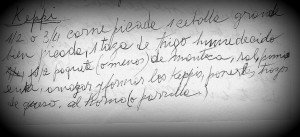 Keppi
1/2 o 3/4 carne picada 1 cebolla grande
bien picada, 1 taza de trigo humedecido
1/2 paquete (o menos) de manteca, sal, pimienta
amasar y formar los keppis, ponerles trozos
de queso, al horno (o parrilla)